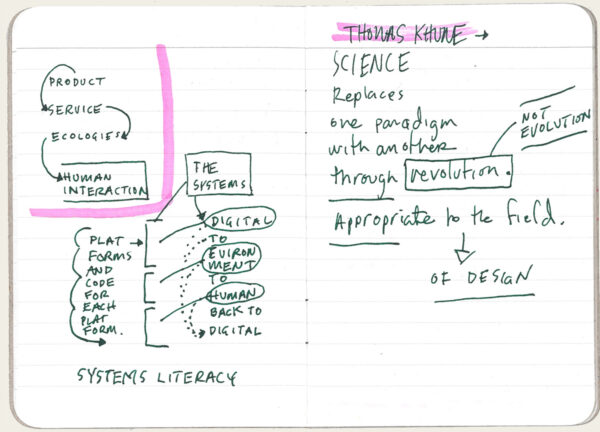 PRODUCT
SERVICE
ECOLOGIES
HUMAN
INTERACTION
THE
SYSTEMS
PLAT
FORMS
AND
CODE
FOR
EACH
PLAT
FORM.
DIGITAL
TO
EVIRON
MENT
TO
HUMAN
BACK TO
DIGITAL
SYSTEMS LITERACY
THOMAS KHUNE
SCIENCE
Replaces
one paradigm
with another
through revolution.
NOT
EVOLUTION
Appropriate to the field.
OF DESIGN